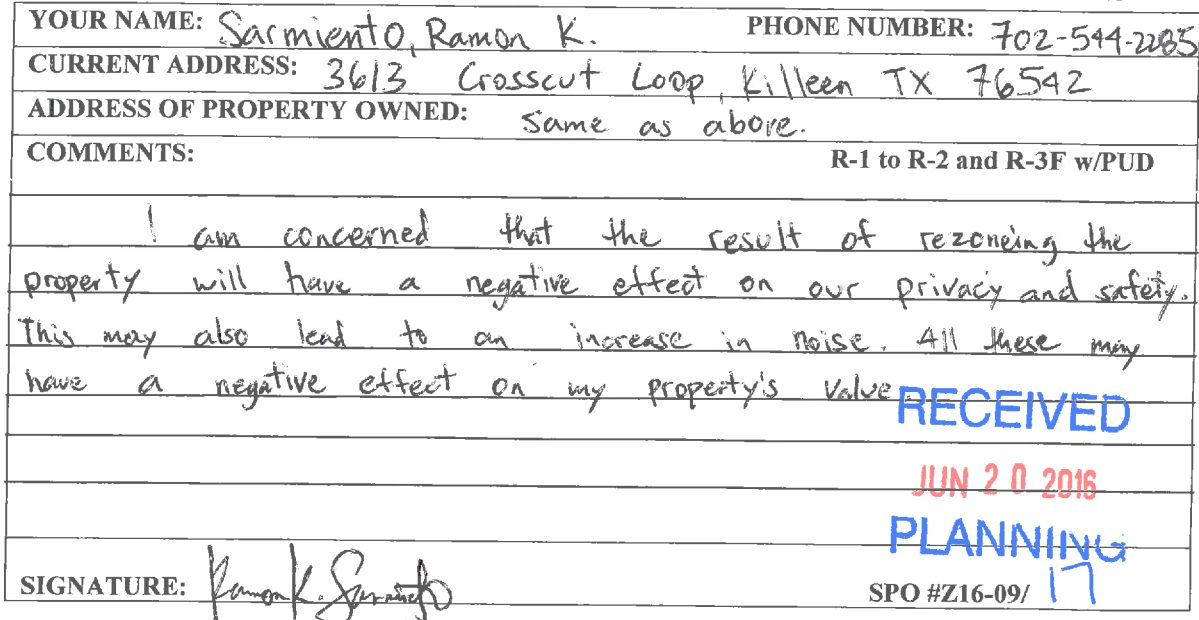 YOUR NAME: Sarmiento, Ramon K. PHONE NUMBER: 702-544-2285
CURRENT ADDRESS: 3613 Crosscut Loop, Killeen TX 76542
ADDRESS OF PROPERTY OWNED: Same as above.
COMMENTS: R-1 to R-2 and R-3F w/PUD
I am concerned that the result of rezoneing the
property will have a negative effect on our privacy and safety.
This may also lead to an increase in noise. All these may
have a negative effect on my property's value
RECEIVED
JUN 20 2016
PLANNING
SIGNATURE: Ramon K. Sarmiento SPO #Z16-09/ 17